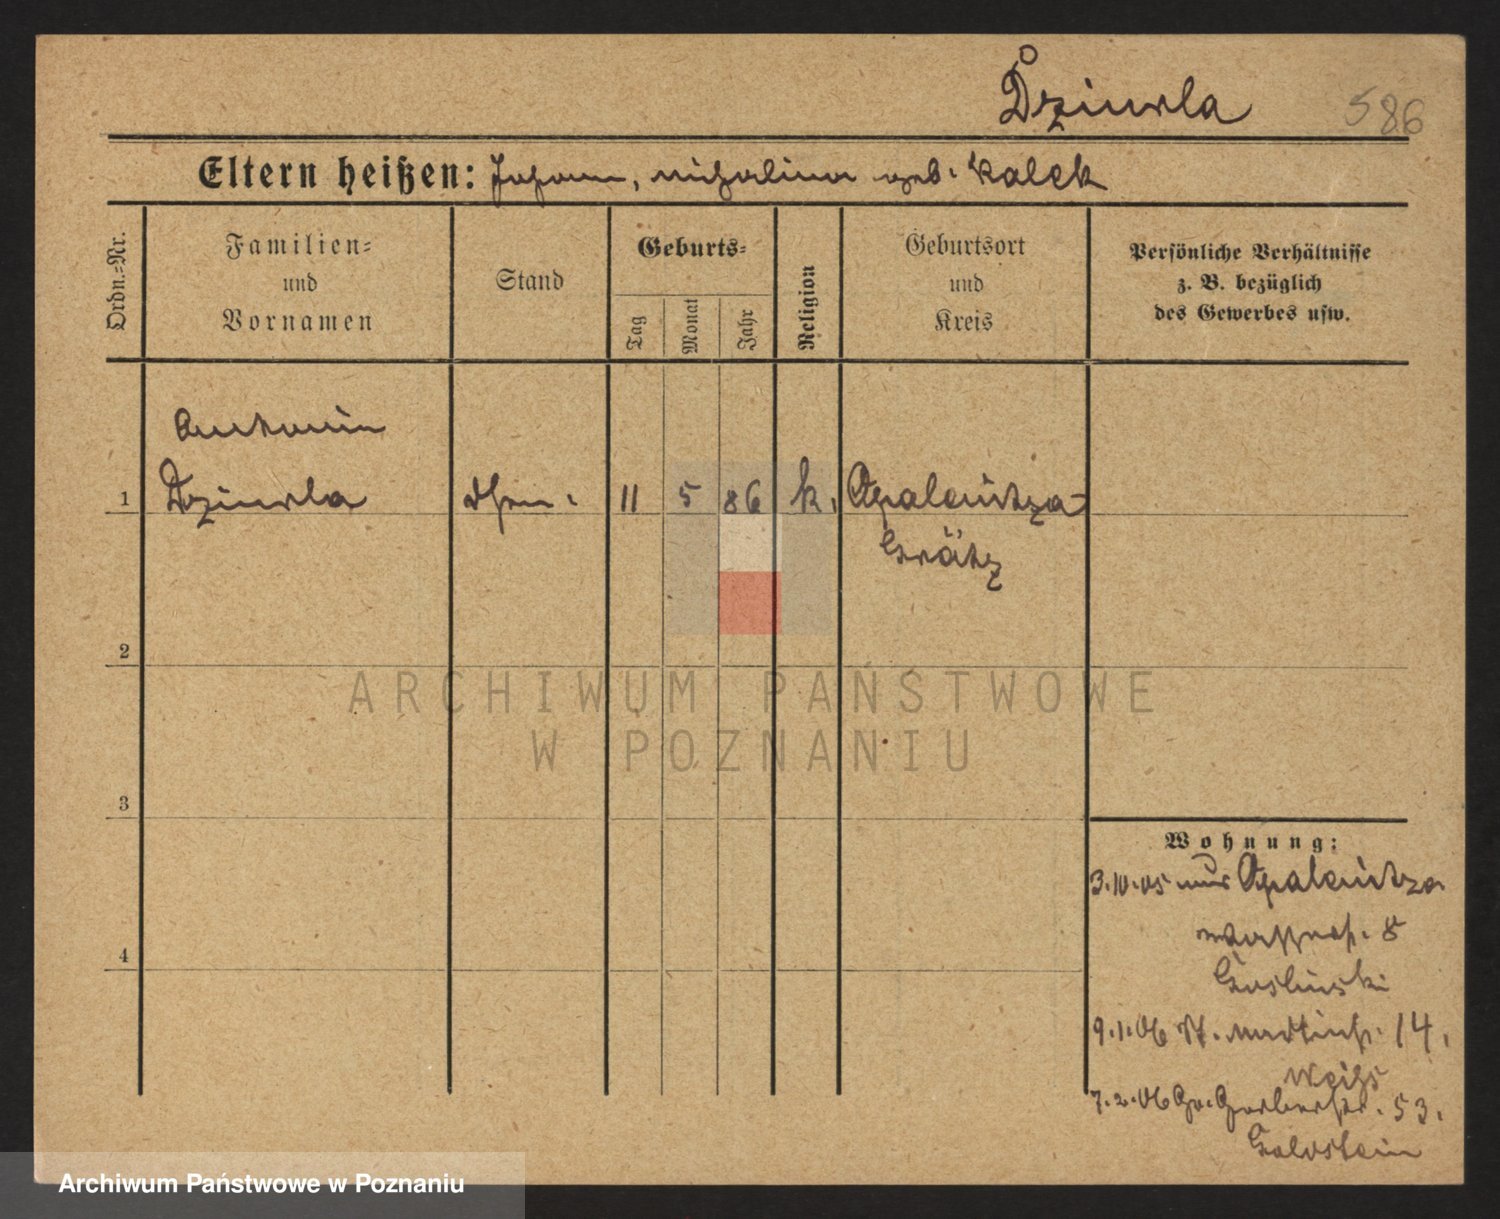 Dziurla 586
Eltern heißen: Johann, Michalina geb. Kalek
Ordn.=Nr.
Familien=
und
Vornamen
Stand
Geburts=
Tag
Monat
Jahr
Religion
Geburtsort
und
Kreis
Persönliche Verhältnisse
z. B. bezüglich
des Gewerbes usw.
Antonin
1 Dziurla 11 5 86 k. Opalenitza-
Grätz
2
3
4
Wohnung:
3.10.05 aus Opalenitza
8
Goslinski
9.1.06 St. Martinstr. 14.
7.2.06 Gr. Gerberstr. 53.
Goldstein
ARCHIWUM PAŃSTWOWE
W POZNANIU
Archiwum Państwowe w Poznaniu